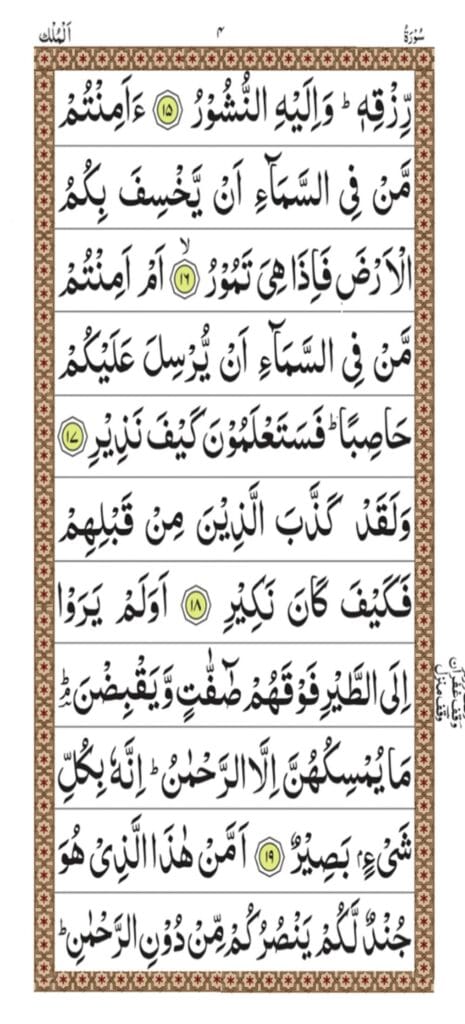 سُوْرَةُ ٤ اَلْمُلْك
رِّزْقِهٖ ؕ وَاِلَيْهِ النُّشُوْرُ ۝١٥ ءَاَمِنْتُمْ
مَّنْ فِی السَّمَآءِ اَنْ يَّخْسِفَ بِكُمُ
الْاَرْضَ فَاِذَا هِیَ تَمُوْرُ ۝١٦ۙ اَمْ اَمِنْتُمْ
مَّنْ فِی السَّمَآءِ اَنْ يُّرْسِلَ عَلَيْكُمْ
حَاصِبًا ؕ فَسَتَعْلَمُوْنَ كَيْفَ نَذِيْرِ ۝١٧
وَلَقَدْ كَذَّبَ الَّذِيْنَ مِنْ قَبْلِهِمْ
فَكَيْفَ كَانَ نَكِيْرِ ۝١٨ اَوَلَمْ يَرَوْا
اِلَی الطَّيْرِ فَوْقَهُمْ صٰٓفّٰتٍ وَّيَقْبِضْنَ ؔۘؕ
مَا يُمْسِكُهُنَّ اِلَّا الرَّحْمٰنُ ؕ اِنَّهٗ بِكُلِّ
شَیْءٍۭ بَصِيْرٌ ۝١٩ اَمَّنْ هٰذَا الَّذِیْ هُوَ
جُنْدٌ لَّكُمْ يَنْصُرُكُمْ مِّنْ دُوْنِ الرَّحْمٰنِ ؕ
وقف غفران
وقف منزل